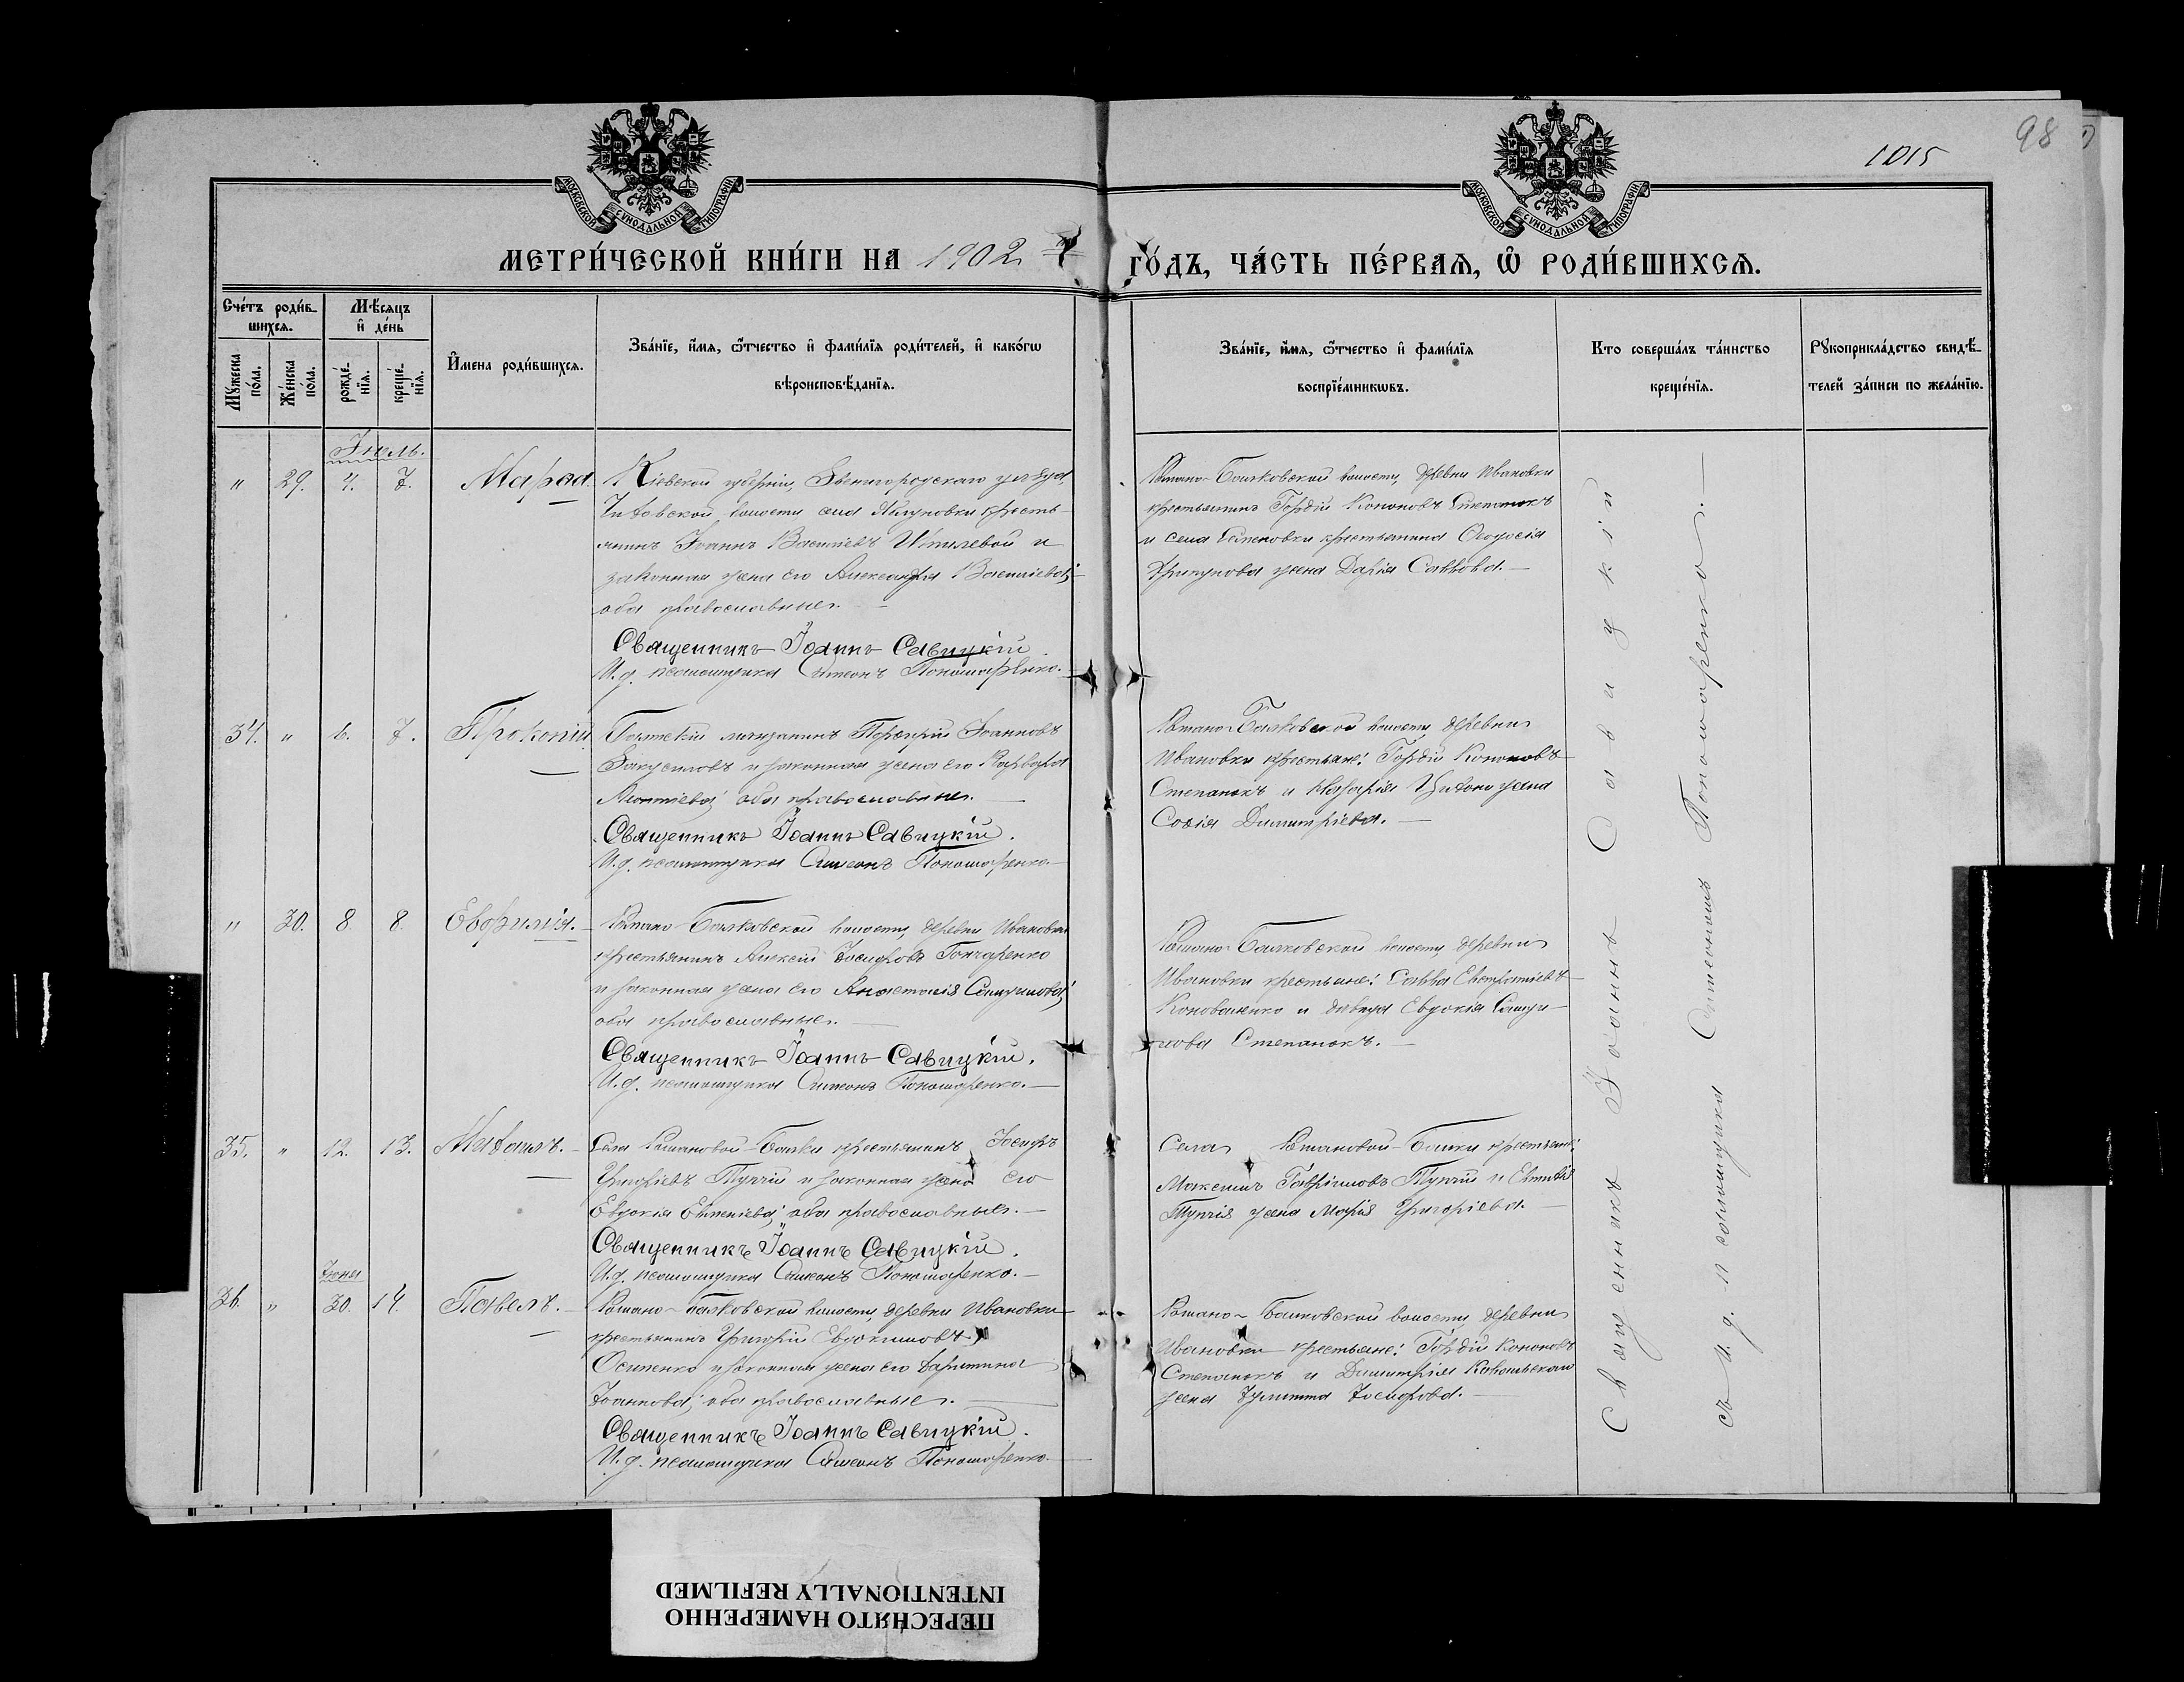 98
1015
МОСКОВСКОЙ СѴНОДАЛЬНОЙ ТИПОГРАФІИ
МОСКОВСКОЙ СѴНОДАЛЬНОЙ ТИПОГРАФІИ
МЕТРИ́ЧЕСКОЙ КНИ́ГИ НА 1902 ГО́ДЪ, ЧА́СТЬ ПЕ́РВАЯ, Ѡ҆ РОДИ́ВШИХСЯ.
Сче́тъ роди́в-
шихся.
Мꙋ́жеска по́ла.
Же́нска по́ла.
Мѣ́сяцъ
и҆ де́нь
рожде́-
нїя.
креще́-
нїя.
И҆мена роди́вшихся.
Зва́нїе, и҆́мя, ѻ҆́тчество и҆ фами́лїя роди́телей, и҆ како́гѡ
вѣроисповѣ́данїя.
Зва́нїе, и҆́мя, ѻ҆́тчество и҆ фами́лїя
воспрїе́мникѡвъ.
Кто соверша́лъ та́инство
креще́нїя.
Рꙋкоприкла́дство свидѣ́-
телей за́писи по жела́нїю.
Іюль.
" 29. 4. 7. Марѳа.
Кіевской губерніи, Звенигородскаго уѣзда,
волости села кресть-
янинъ Іоаннъ Василіевъ и
законная жена его Александра Василіева;
оба православные.
Священникъ Іоаннъ Савицкій.
И.д. псаломщика Симеонъ Пономаренко.
Романо-Балковской волости, деревни Ивановки
крестьянинъ Гордій Кононовъ Степанокъ
и села крестьянина Ѳеодосія
жена Дарія Саввова.
34. " 6. 7. Прокопій
мѣщанинъ Порфирій Іоанновъ
и законная жена его Варвара
Леонтіева; оба православные.
Священникъ Іоаннъ Савицкій.
И.д. псаломщика Симеонъ Пономаренко
Романо-Балковской волости деревни
Ивановки крестьяне: Гордій Кононовъ
Степанокъ и Назарія жена
Софія Димитріева.
" 30. 8. 8. Евфимія.
Романо-Балковской волости, деревни Ивановки
крестьянинъ Алексій Іосифовъ Гончаренко
и законная жена его Анастасія
оба православные.
Священникъ Іоаннъ Савицкій.
И.д. псаломщика Симеонъ Пономаренко.
Романо-Балковской волости, деревни
Ивановки крестьяне: Савва Евстратіевъ
Коноваленко и дѣвица Евдокія
Степанокъ.
35. " 12. 13.
Села Романовой-Балки крестьянинъ Іосифъ
Григоріевъ Тупчій и законная жена его
Евдокія оба православные.
Священникъ Іоаннъ Савицкій.
И.д. псаломщика Симеонъ Пономаренко.
Села Романовой-Балки крестьяне:
Максимъ Гавріиловъ Тупчій и
Тупчія жена Марія Григоріева.
Іюня
36. " 30. 14. Павелъ.
Романо-Балковской волости, деревни Ивановки
крестьянинъ Григорій Евдокимовъ
Осипенко и законная жена его
Іоаннова; оба православные.
Священникъ Іоаннъ Савицкій.
И.д. псаломщика Симеонъ Пономаренко.
Романо-Балковской волости, деревни
Ивановки крестьяне: Гордій Кононовъ
Степанокъ и Димитрія
жена Іулитта Іосифова.
Священникъ Іоаннъ Савицкій
съ И.д. псаломщика Симеономъ Пономаренко.
ПЕРЕСНЯТО НАМЕРЕННО
INTENTIONALLY REFILMED